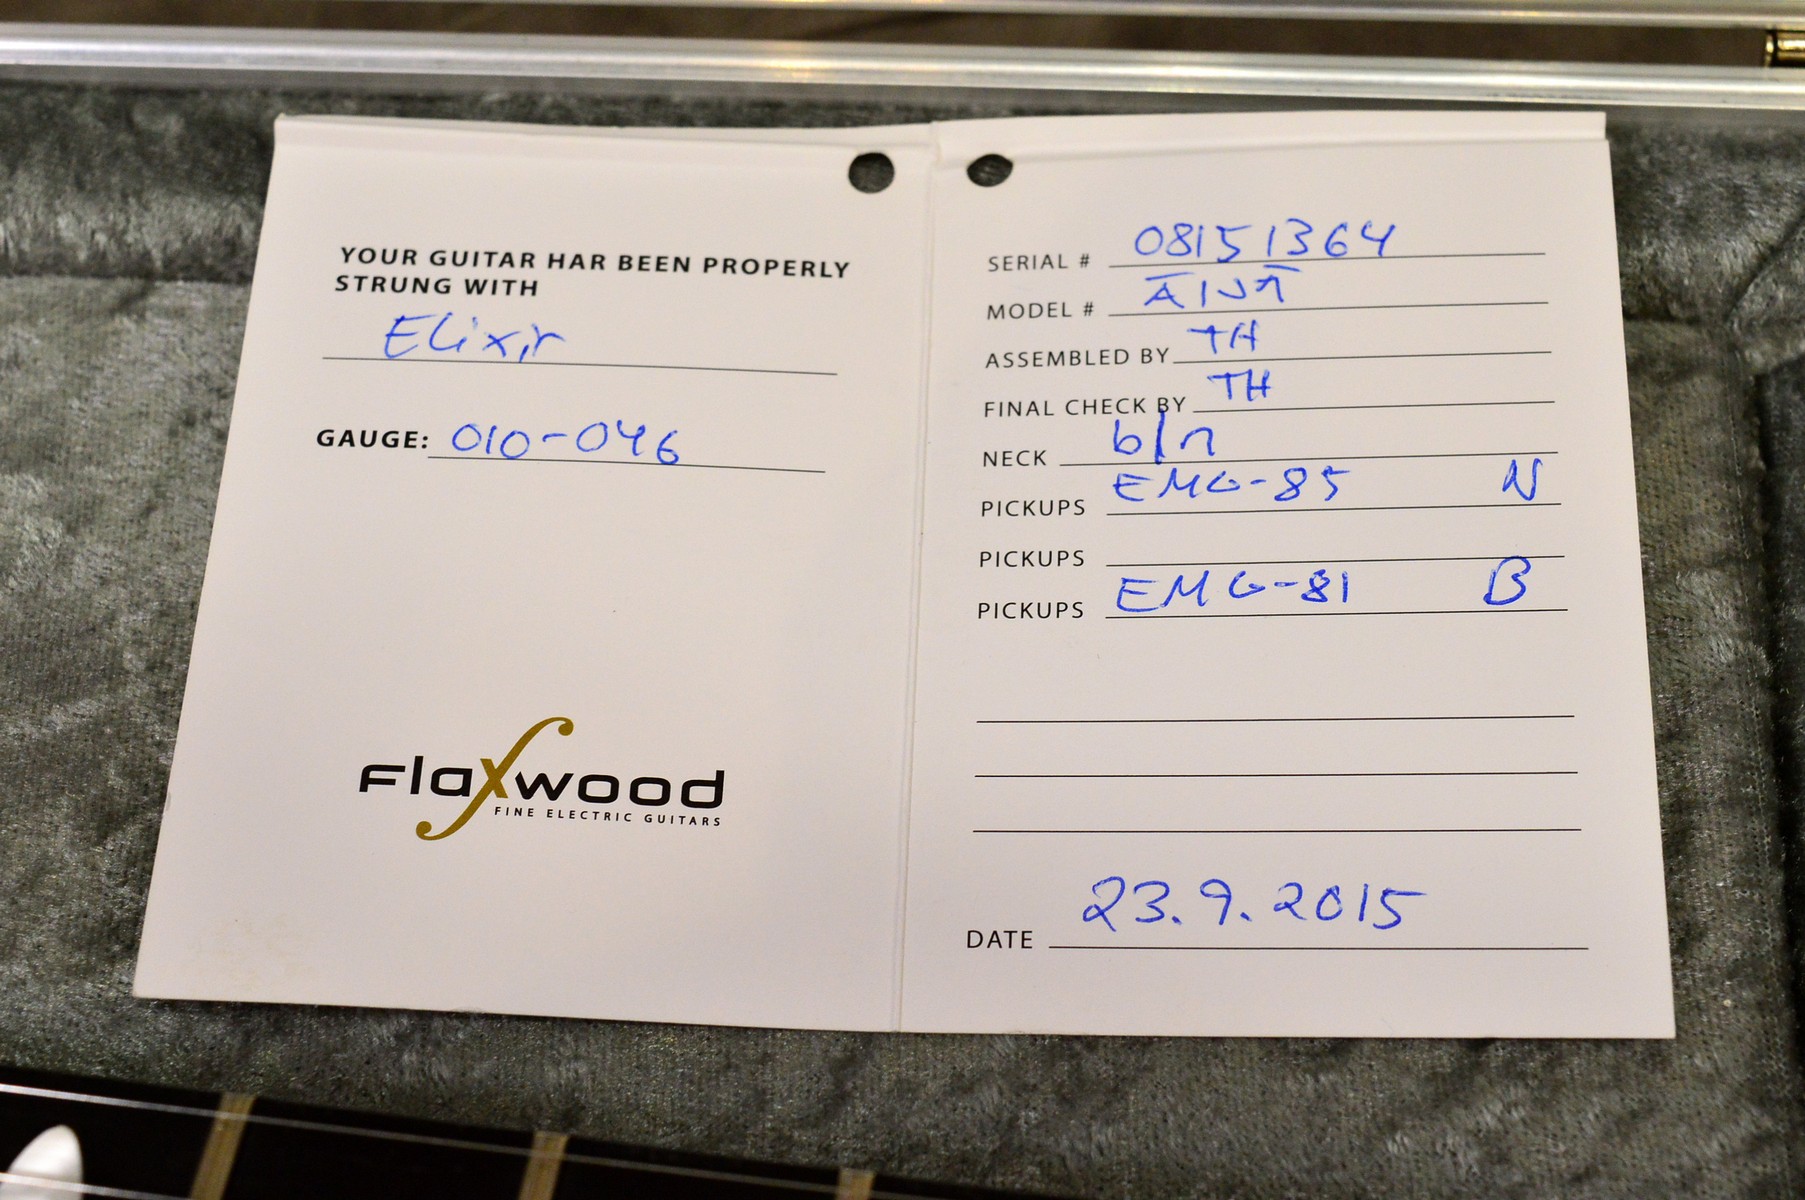 YOUR GUITAR HAR BEEN PROPERLY
STRUNG WITH
Elixir
GAUGE: 010-046
flaxwood
FINE ELECTRIC GUITARS
SERIAL # 08151364
MODEL #
ASSEMBLED BY TH
FINAL CHECK BY TH
NECK b/n
PICKUPS EMG-85 N
PICKUPS
PICKUPS EMG-81 B
DATE 23.9.2015